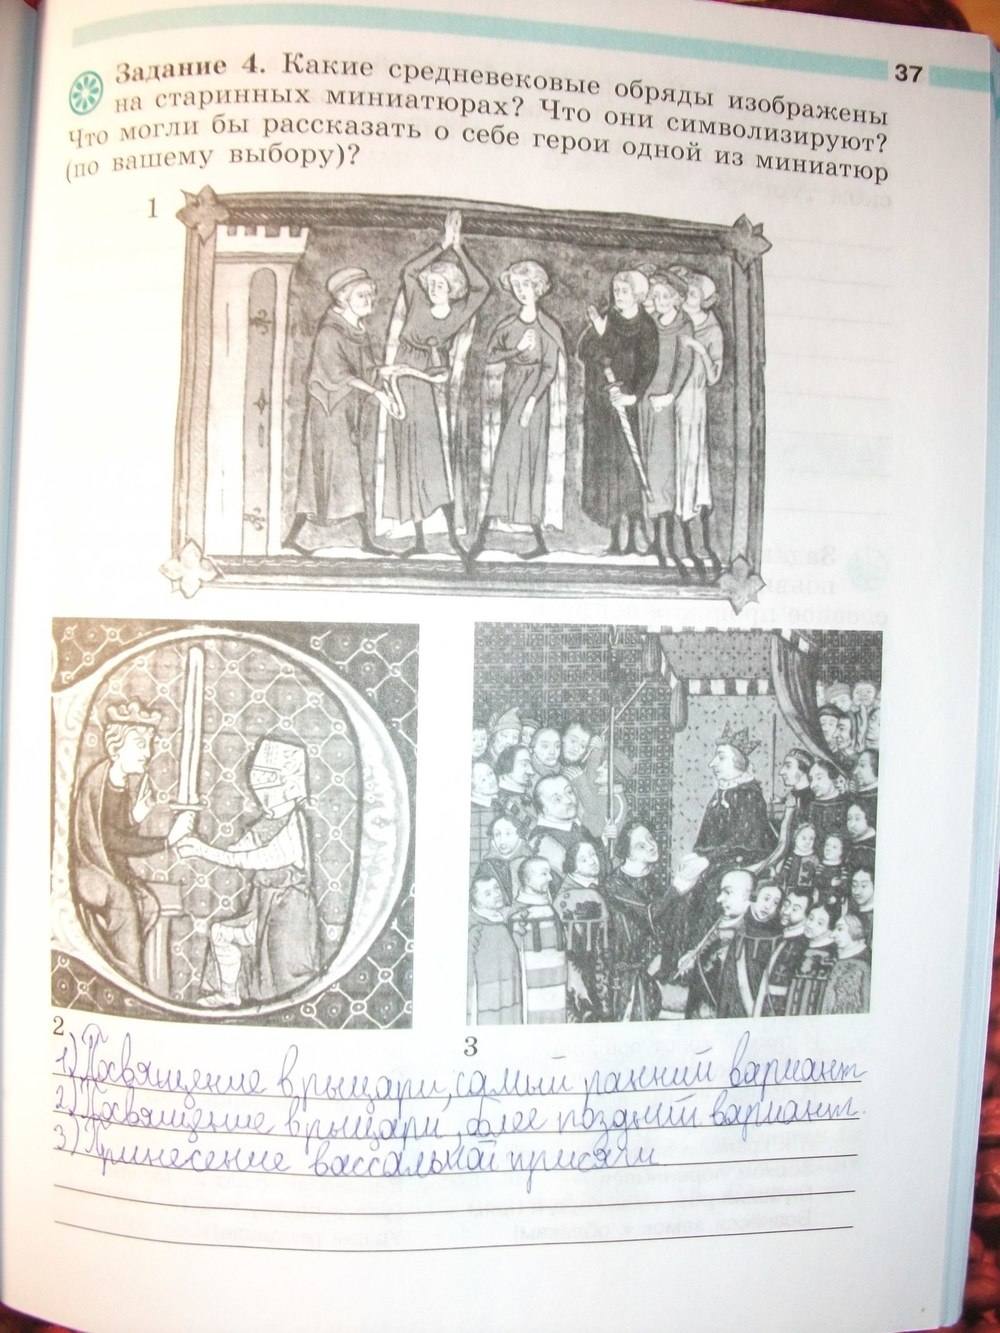 37
Задание 4. Какие средневековые обряды изображены
на старинных миниатюрах? Что они символизируют?
Что могли бы рассказать о себе герои одной из миниатюр
(по вашему выбору)?
1
2
3
1) Посвящение в рыцари, самый ранний вариант
2) Посвящение в рыцари, более поздний вариант.
3) Принесение вассальной присяги